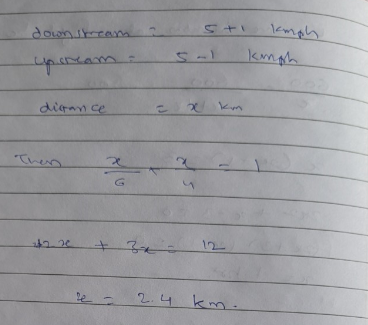 downstream = 5+1 kmph
upstream = 5-1 kmph
distance = x km
Then x/6 + x/4 = 1
2x + 3x = 12
x = 2.4 km.